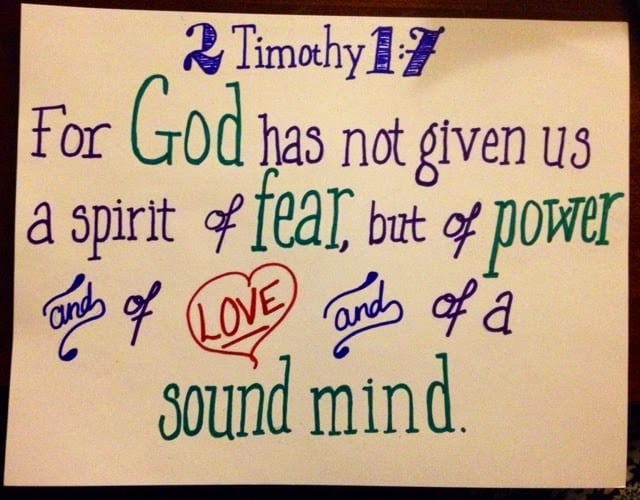 2 Timothy 1:7
For God has not given us
a spirit of fear, but of power
and of LOVE and of a
sound mind.